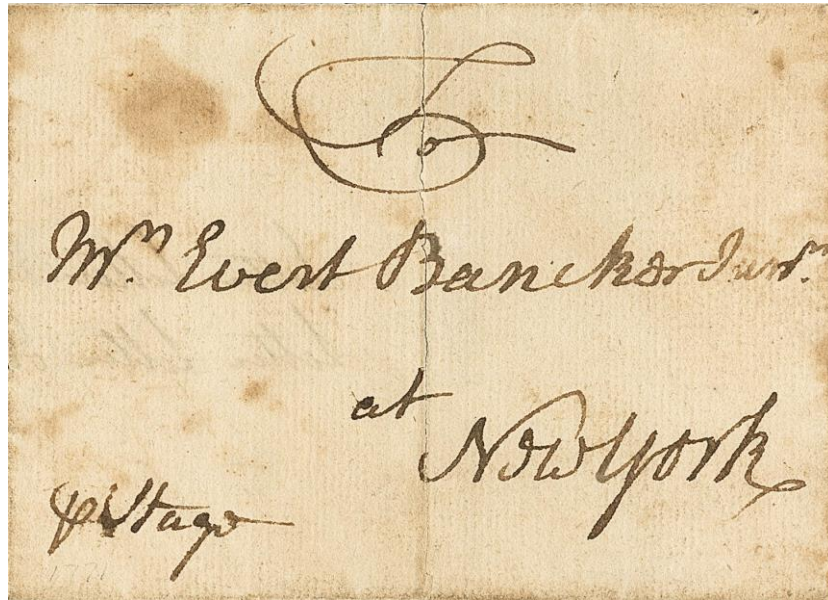 To
Mr. Evert Bancker Junr.
at
New York
⅌ Stage
1771